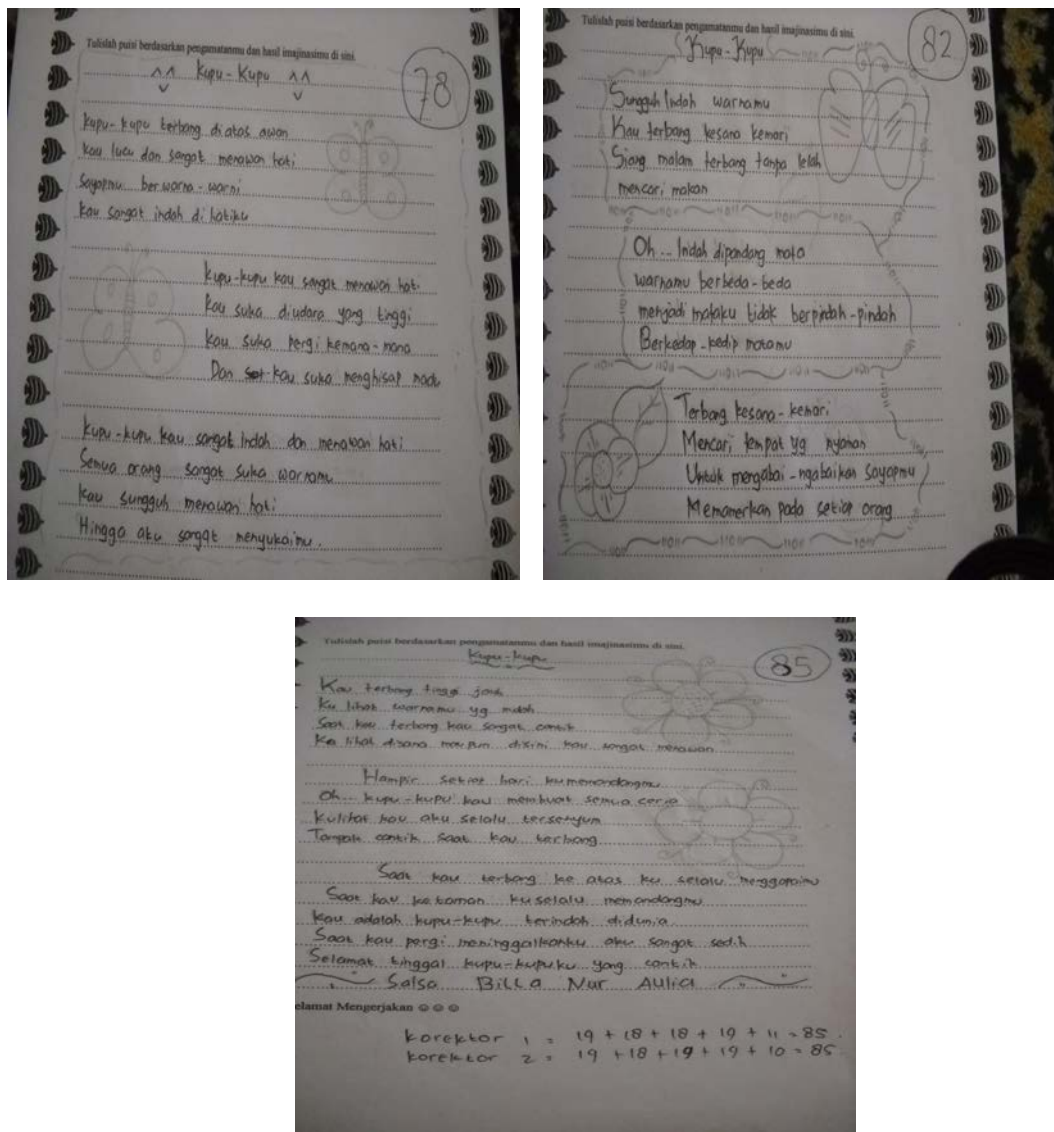 Tulislah puisi berdasarkan pengamatanmu dan hasil imajinasimu di sini.
^^ Kupu-Kupu ^^
78
Kupu-kupu terbang diatas awan
Kau lucu dan sangat menawan hati
Sayapmu berwarna-warni
Kau sangat indah di hatiku
Kupu-kupu kau sangat menawan hati
Kau suka diudara yang tinggi
Kau suka pergi kemana-mana
Dan kau suka menghisap madu
Kupu-kupu kau sangat indah dan menawan hati
Semua orang sangat suka warnamu
Kau sungguh menawan hati
Hingga aku sangat menyukaimu.
Tulislah puisi berdasarkan pengamatanmu dan hasil imajinasimu di sini.
Kupu-Kupu
82
Sungguh Indah warnamu
Kau terbang kesana kemari
Siang malam terbang tanpa lelah
mencari makan
Oh... Indah dipandang mata
warnamu berbeda-beda
menjadi mataku tidak berpindah-pindah
Berkedap-kedip matamu
Terbang kesana-kemari
Mencari tempat yg nyaman
Untuk mengabai-ngabaikan Sayapmu
Memamerkan pada setiap orang
Tulislah puisi berdasarkan pengamatanmu dan hasil imajinasimu di sini.
Kupu-kupu
85
Kau terbang tinggi jauh
Ku lihat warnamu yg indah
Saat kau terbang kau sangat cantik
Ku lihat disana maupun disini kau sangat menawan
Hampir setiap hari ku memandangmu
Oh... kupu-kupu kau membuat semua ceria
Kulihat kau aku selalu tersenyum
Tampak cantik saat kau terbang
Saat kau terbang ke atas ku selalu menggapaimu
Saat kau ketaman kuselalu memandangmu
Kau adalah kupu-kupu terindah didunia
Saat kau pergi meninggalkanku aku sangat sedih
Selamat tinggal kupu-kupuku yang cantik
Salsa Billa Nur Aulia
elamat Mengerjakan ☺☺☺
korektor 1 = 19 + 18 + 18 + 19 + 11 = 85.
korektor 2 = 19 + 18 + 19 + 19 + 10 = 85.